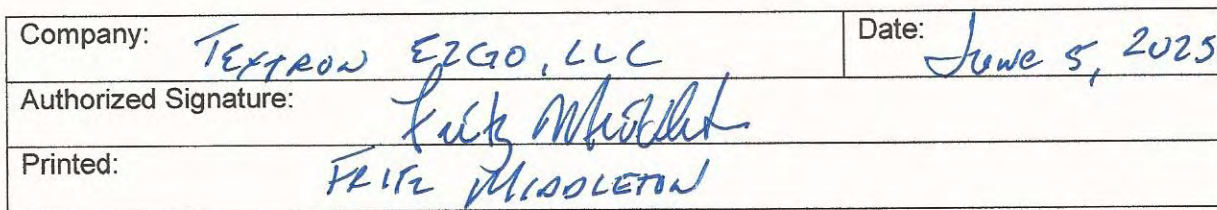 Company: TEXTRON EZGO, LLC Date: June 5, 2025
Authorized Signature: Fritz Middleton
Printed: FRITZ MIDDLETON